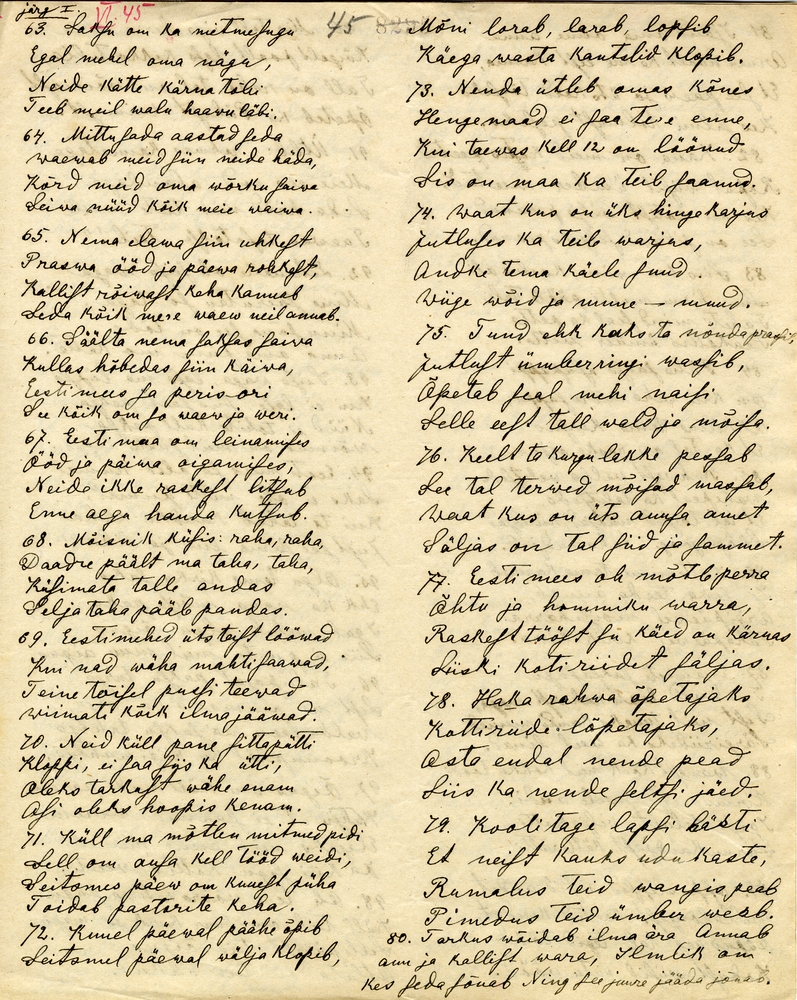 järg I.
VI. 45
45
63. Saksu om ka mitmesugu
Egal mehel oma nägu,
Neide kätte kärna tõbi
Teeb meil walu haawu läbi.
64. Mittu sada aastad seda
waewab meid siin neide häda,
Kõrd meid oma wõrku saiwe
Seiwa nüüd kõik meie waiwa.
65. Nema elawa siin uhkest
Praswa ööd ja päewa rohkest,
Kallist rõiwast keha kannab
Seda kõik meie waew neil annab.
66. Säält a nema saksas saiwa
Kullas hõbedas siin käiwa,
Eesti mees sa peris ori
See kõik om so waew ja weri.
67. Eestimaa om leinamises
Ööd ja päiwa oigamises,
Neide ikke raskest litsub
Enne aegu hauda kutsub.
68. Mõisnik küsis: raha, raha,
Daadre päält ma taha, taha,
Küsimata talle andas
Selja taha pääb pandas.
69. Eestimehed üts teist lööwad
Kui nad wäha mahti saawad,
Teine tõisel pussi teewad
wiimati kõik ilma jääwad.
70. Neid küll pane sittapätti
Kloppi, ei saa siis ka ütti,
Oleks tarkust wähe enam
Asi oleks hoopis kenam.
71. Küll ma mõtlen mitmed pidi
Sell om ausa kell tööd weidi,
Seitsmes päew om kuuest püha
Toidab pastorite keha.
72. Kuuel päewal päähe õpib
Seitsmel päewal wälja klopib,
Mõni lorab, larab, lopsib
Käega wasta kantslid klopib.
73. Nenda ütleb omas kõnes
Hengemaad ei saa teie enne,
Kui taewas kell 12 on löönud
Sis on maa ka teil saanud.
74. Waat kus on üks hinge karjus
Jutluses ka teile warjus,
Andke tema käele suud
Wiige wõid ja mune — muud.
75. Tund ehk kaks ta nõnda prassib,
Jutlust ümberringi wassib,
Õpetab seal mehi naisi
Selle eest tall wald ja mõisa.
76. Keelt ta kuzeu lakke pessab
See tal terwed mõisad massab,
Waat kus on üts ausa amet
Säljas on tal siid ja sammet.
77. Eestimees oh mõtle perra
Õhtu ja hommiku warra,
Raskest tööst su käed on kärnas
Siiski kotiriidet säljas.
78. Haka rahwa õpetajaks
Kottiriide lõpetajaks,
Osta endal nende pead
Siis ka nende seltsi jäed.
79. Koolitage lapsi hästi
Et neist kauks udu kaste,
Rumalus teid wangis peab
Pimedus teid ümber weab.
80. Tarkus wõidab ilma ära Annab
auu ja kallist wara, Ilmlik om
kes seda sõuab Ning see juure jääda jõuab.